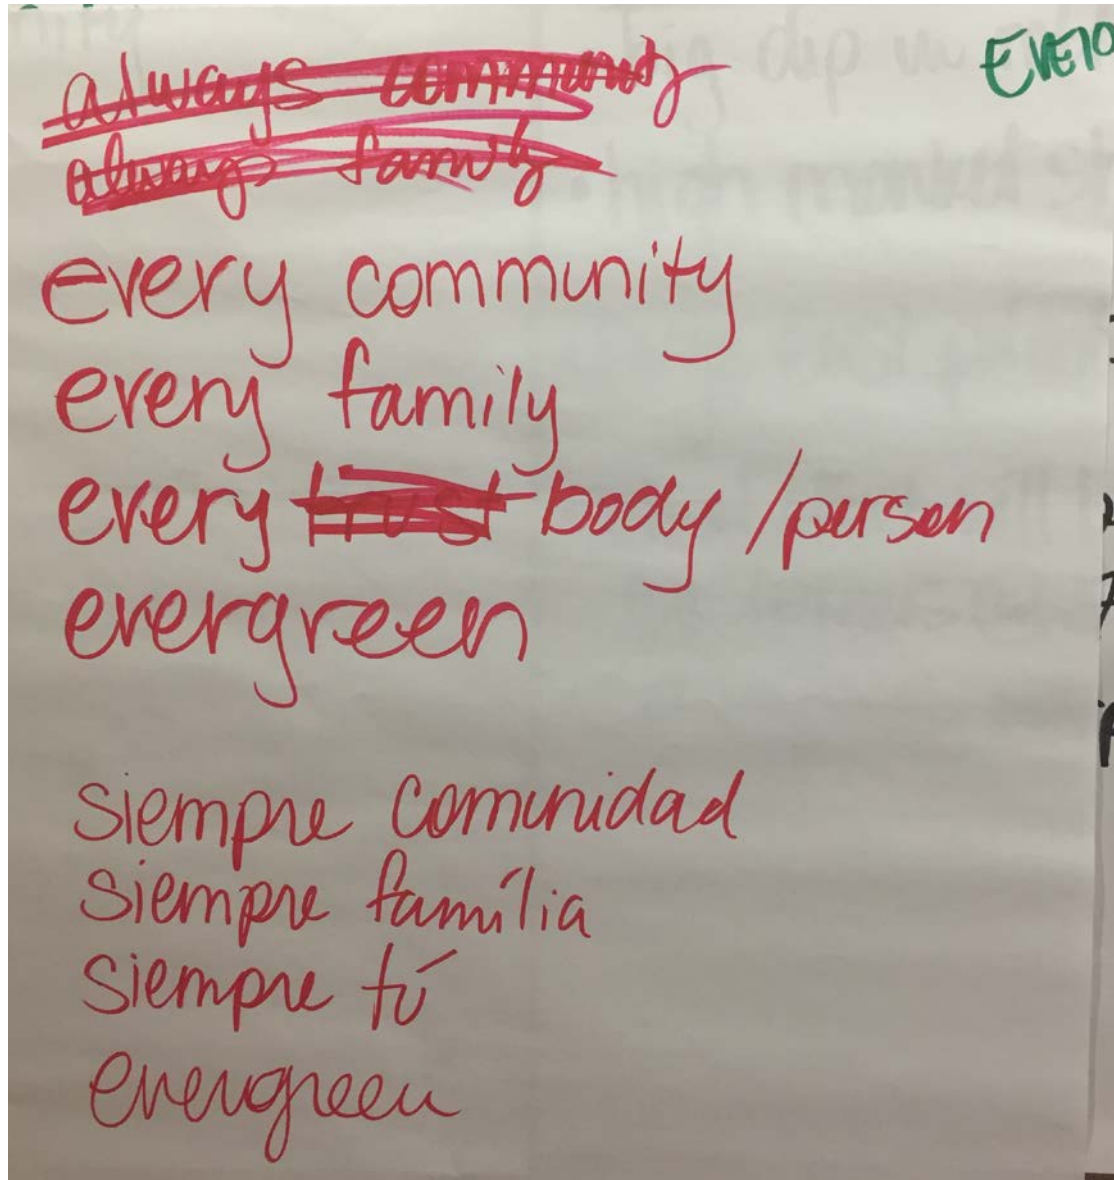 always community
always family
every community
every family
every trust body / person
evergreen
siempre comunidad
siempre família
siempre tú
evergreen